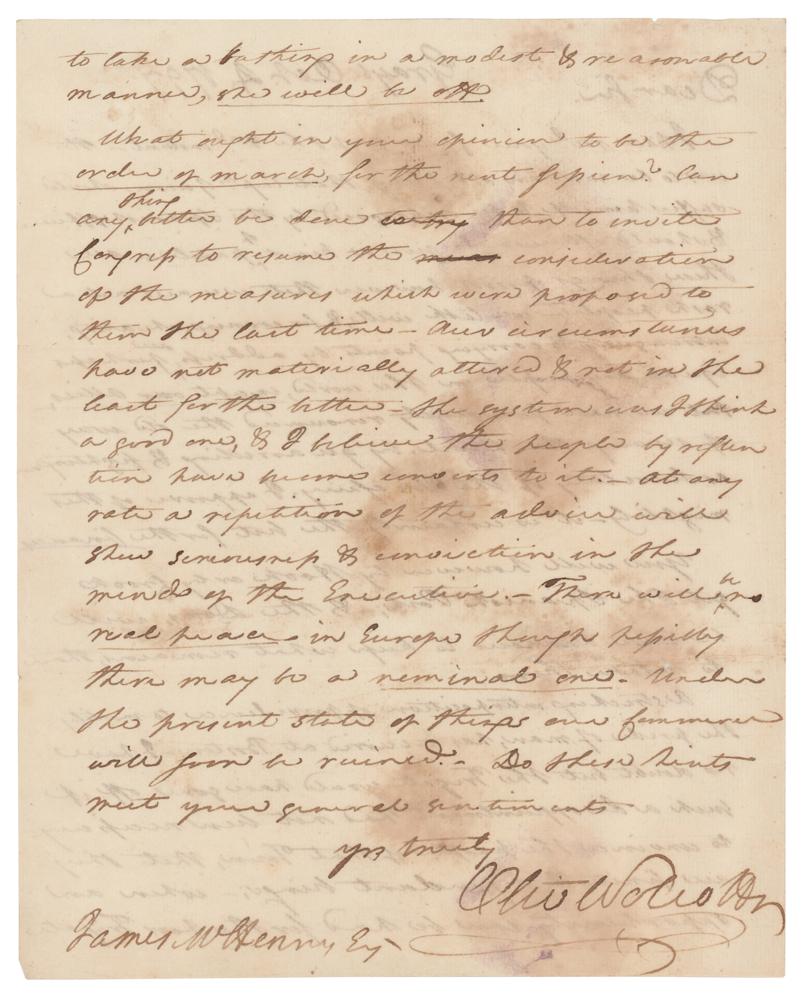 to take a bathing in a modest & reasonable
manner, she will be off.
What ought in your opinion to be the
order of march, for the next session? Can
any thing better be done to try than to invite
Congress to resume the consideration
of the measures which were proposed to
them the last time – Our circumstances
have not materially altered & not in the
least for the better – the system was I think
a good one, & I believe the people by reflec
tion have become converts to it. – at any
rate a repetition of the advice will
shew seriousness & conviction in the
mind of the Executive. – There will no
real peace in Europe though possibly
there may be a nominal one. Under
the present state of things our Commerce
will soon be ruined. – Do these hints
meet your general sentiments
yrs truly
Oliv Wolcott Jr
James McHenry, Esq